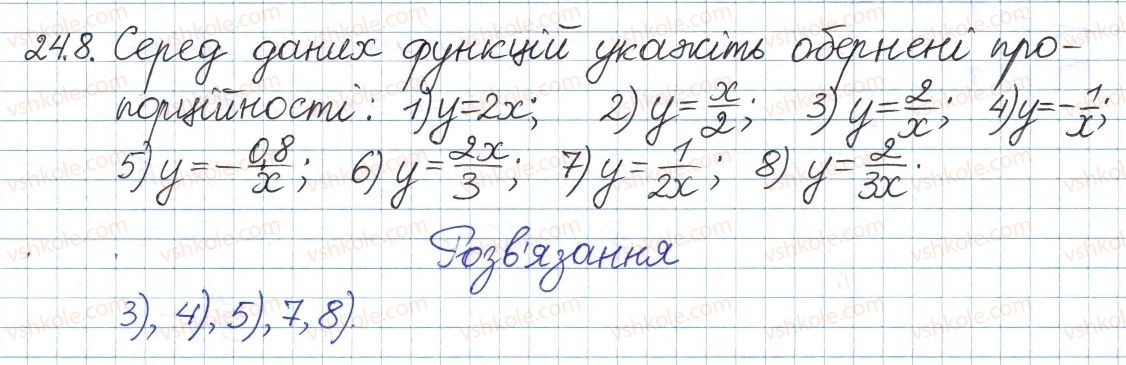 24.8. Серед даних функцій укажіть обернені про-
порційності: 1) y=2x; 2) y=x/2; 3) y=2/x; 4) y=-1/x;
5) y=-0,8/x; 6) y=2x/3; 7) y=1/2x; 8) y=2/3x.
Розв'язання
3), 4), 5), 7, 8).